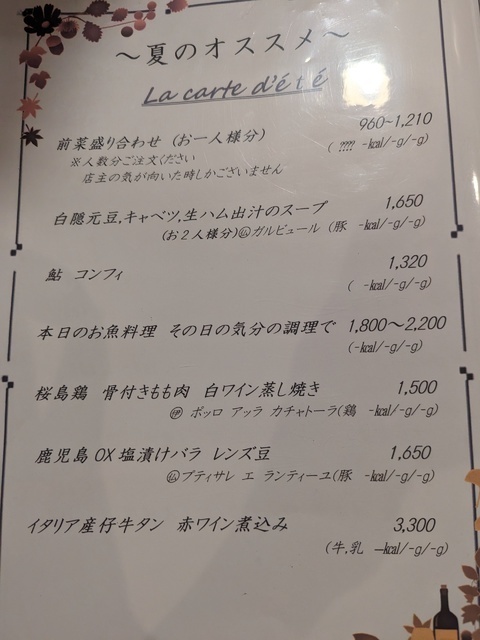 ～夏のオススメ～
La carte d'été
前菜盛り合わせ (お一人様分) 960~1,210
※人数分ご注文ください ( ???? -kcal/-g/-g)
店主の気が向いた時しかございません
白隠元豆,キャベツ,生ハム出汁のスープ 1,650
(お2人様分)㋶ガルビュール (豚 -kcal/-g/-g)
鮎 コンフィ 1,320
( -kcal/-g/-g)
本日のお魚料理 その日の気分の調理で 1,800～2,200
(-kcal/-g/-g)
桜島鶏 骨付きもも肉 白ワイン蒸し焼き 1,500
㋑ ポッロ アッラ カチャトーラ(鶏 -kcal/-g/-g)
鹿児島OX塩漬けバラ レンズ豆 1,650
プティサレ エ ランティーユ(豚 -kcal/-g/-g)
イタリア産仔牛タン 赤ワイン煮込み 3,300
(牛,乳 —kcal/-g/-g)